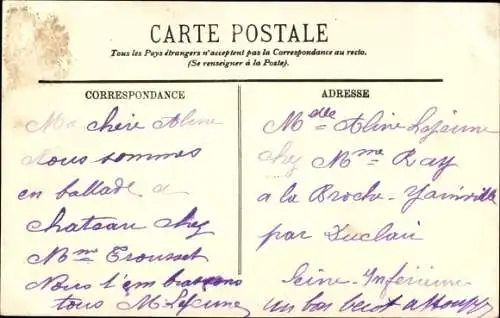 CARTE POSTALE
Tous les Pays étrangers n'acceptent pas la Correspondance au recto.
(Se renseigner à la Poste).
CORRESPONDANCE
Ma chère Aline
Nous sommes
en ballade a
chateau chez
Mme Trousset
Nous t'embrassons
tous M Lejeune
ADRESSE
Melle Aline Lejeune
chez Mme Ray
a la Broche-Yainville
par Duclair
Seine-Inférieure
un bon becot a